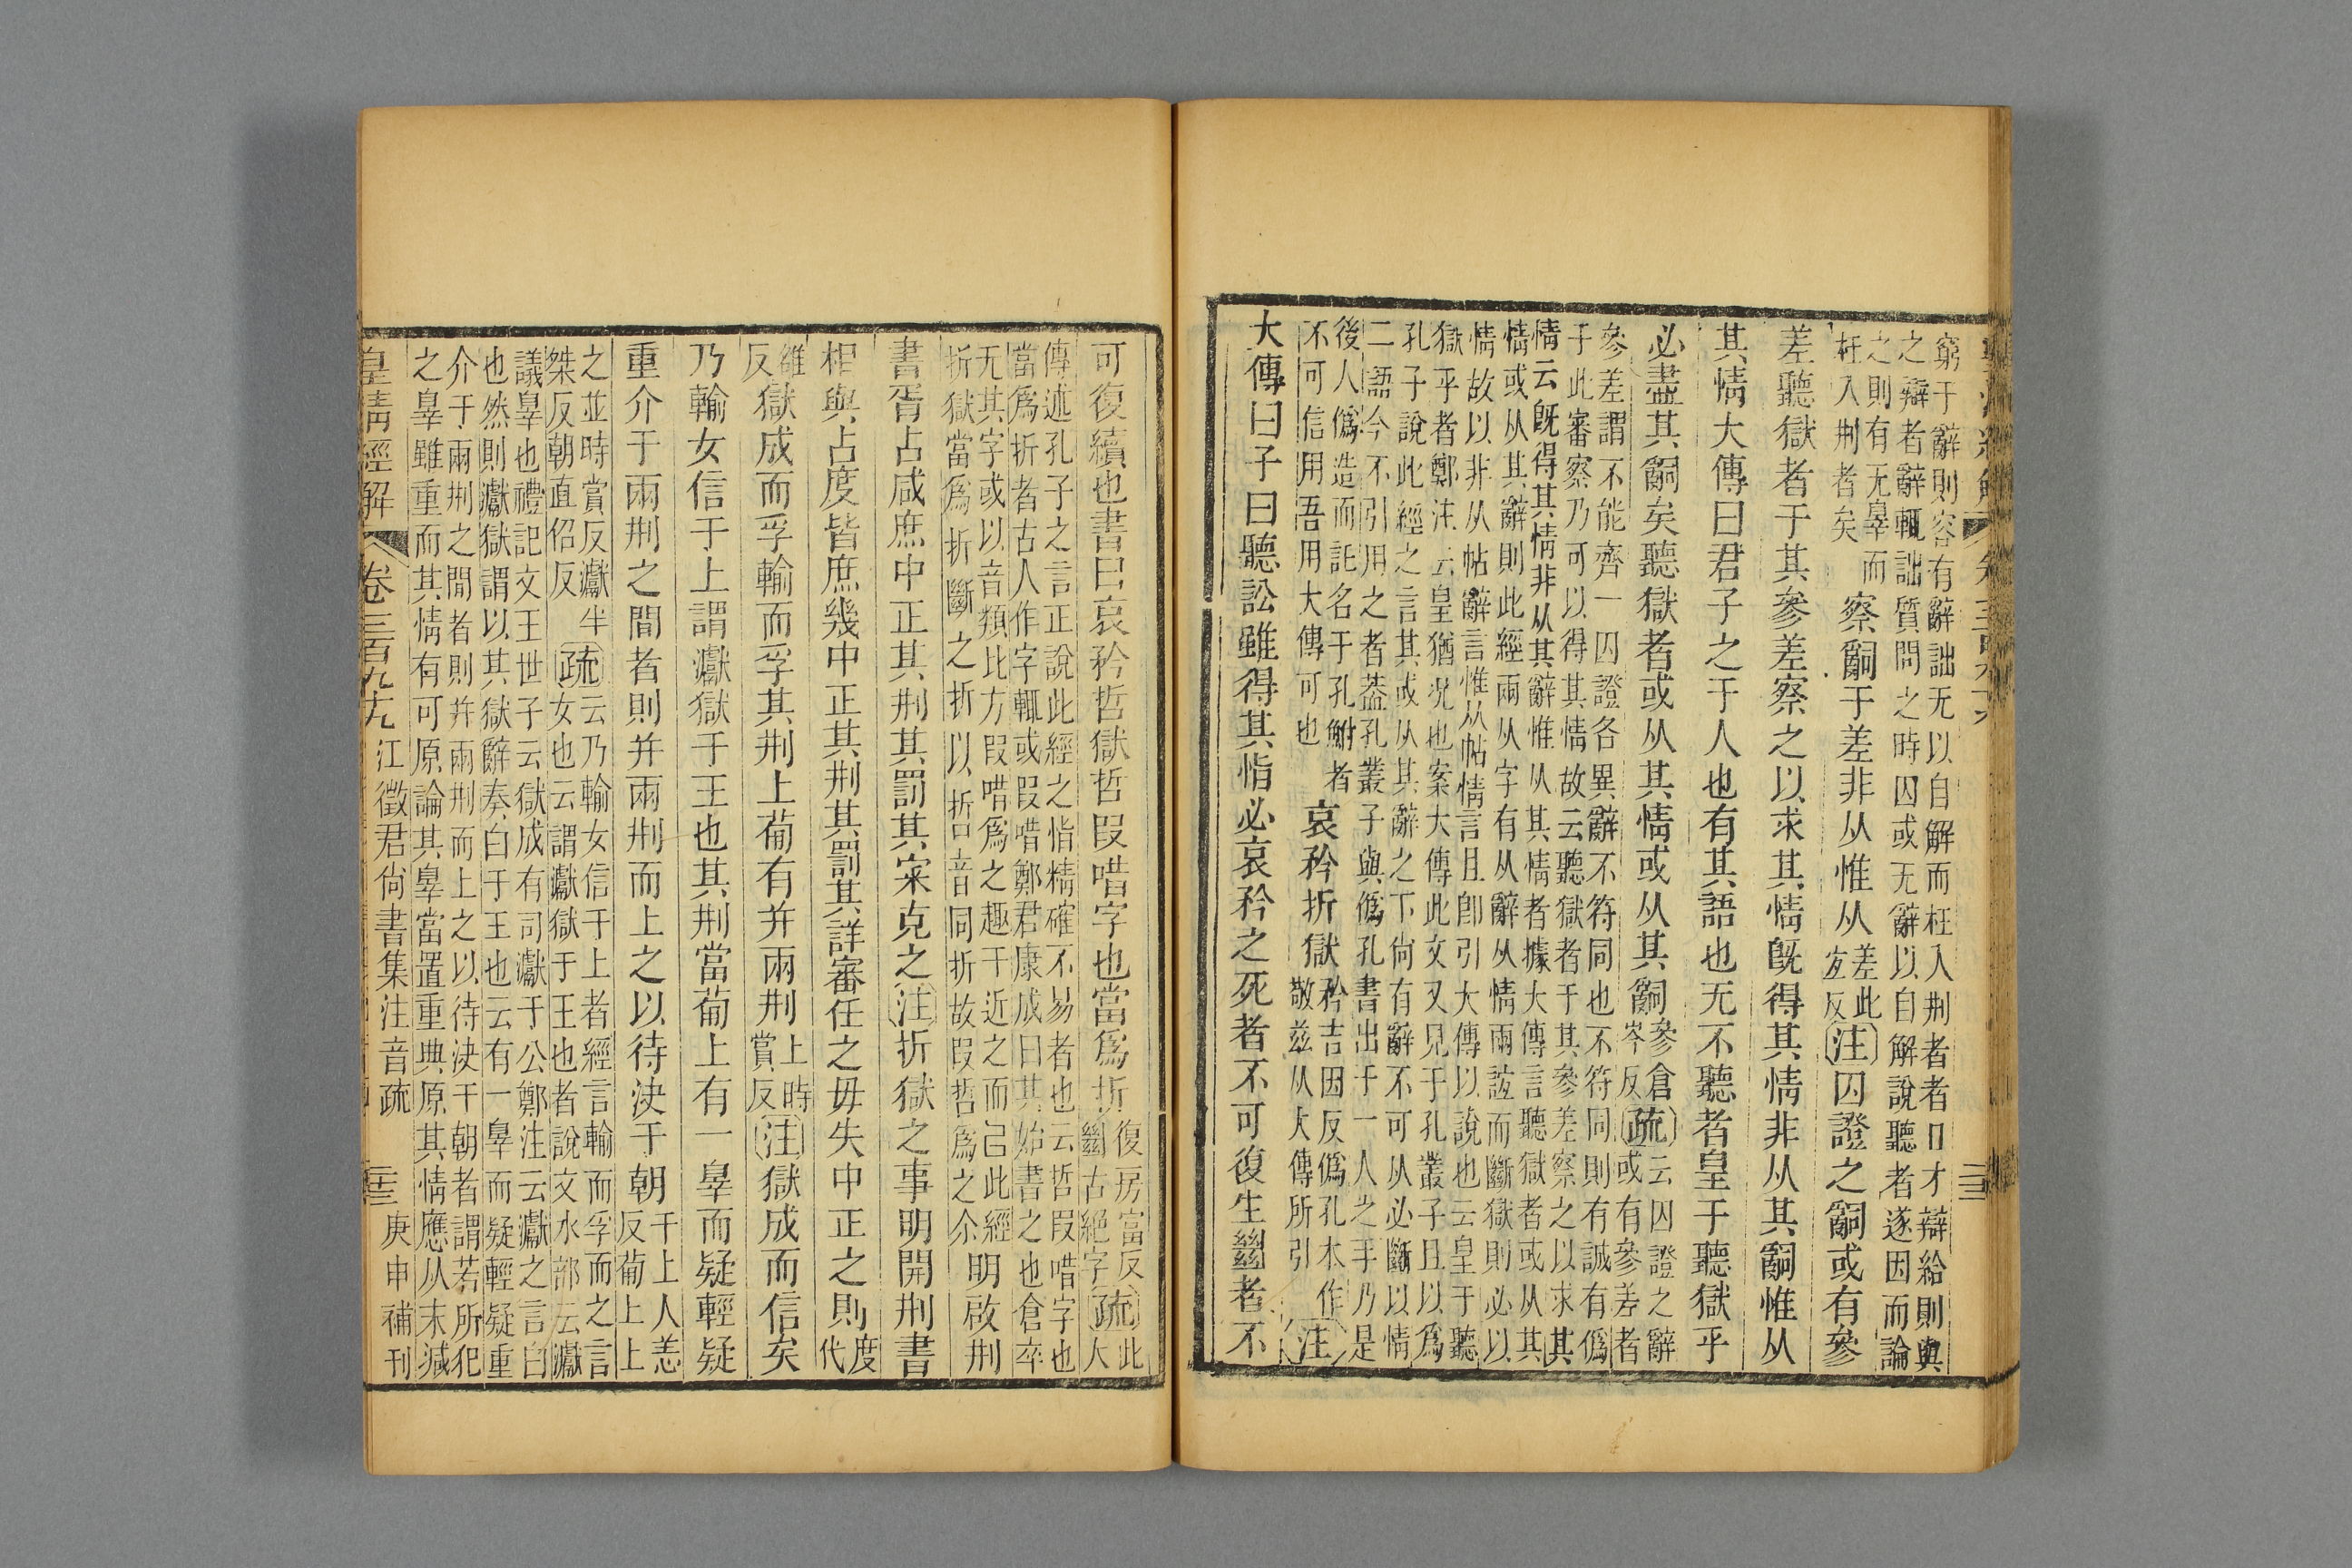 窮于辭則容有辭詘无以自解而枉入𠛬者者口才辯給則與
之辯者辭輒詘質問之時囚或无辭以自解說聽者遂因而論
之則有无辠而
枉入𠛬者矣
察嗣于差非从惟从
差此
宐反
注囚證之嗣或有參
差聽獄者于其參差察之以求其情旣得其情非从其嗣惟从
其情大傳曰君子之于人也有其語也无不聽者皇于聽獄乎
必盡其嗣矣聽獄者或从其情或从其嗣
參倉
岑反
疏
云囚證之辭
或有參差者
參差謂不能齊一囚證各異辭不符同也不符同則有誠有僞
于此審察乃可以得其情故云聽獄者于其參差察之以求其
情云旣得其情非从其辭惟从其情者據大傳言聽獄者或从其
情或从其辭則此經兩从字有从辭从情兩誼而斷獄則必以
情故以非从帖辭言惟从帖情言且卽引大傳以說也云皇于聽
獄乎者鄭注云皇猶況也案大傳此文又見于孔叢子且以爲
孔子說此經之言其或从其辭之下尙有辭不可从必斷以情
二語今不引用之者葢孔叢子與僞孔書出于一人之手乃是
後人僞造而託名于孔鮒者
不可信用吾用大傳可也
哀矜折獄
矜吉因反僞孔本作
敬兹从大傳所引
注
大傳曰子曰聽訟雖得其恉必哀矜之死者不可復生𢇍者不
可復續也書曰哀矜哲獄哲叚唶字也當爲折
復房富反
𢇍古絕字
疏
此
大
傳述孔子之言正說此經之恉精確不易者也云哲叚唶字也
當爲折者古人作字輒或叚唶鄭君康成曰其始書之也倉卒
无其字或以音類比方叚唶爲之趣于近之而已此經
折獄當爲折斷之折以折哲音同折故叚哲爲之尒
明啟𠛬
書胥占咸庶中正其𠛬其罰其宷克之注折獄之事明開𠛬書
相與占度皆庶幾中正其𠛬其罰其詳審任之毋失中正之則
度
代
雒
反
獄成而孚輸而孚其𠛬上葡有并兩𠛬
上時
賞反
注獄成而信矣
乃輸女信于上謂讞獄于王也其𠛬當葡上有一辠而疑輕疑
重介于兩𠛬之間者則并兩𠛬而上之以待決于朝
于上人恙
反葡上上
之並時賞反讞半
桀反朝直佋反
疏
云乃輸女信于上者經言輸而孚而之言
女也云謂讞獄于王也者說文水部云讞
議辠也禮記文王世子云獄成有司讞于公鄭注云讞之言白
也然則讞獄謂以其獄辭奏白于王也云有一辠而疑輕疑重
介于兩𠛬之閒者則并兩𠛬而上之以待決于朝者謂若所犯
之辠雖重而其情有可原論其辠當置重典原其情應从末減
皇淸經解
卷三百九十九
江徵君尙書集注音疏
三
庚申補刊